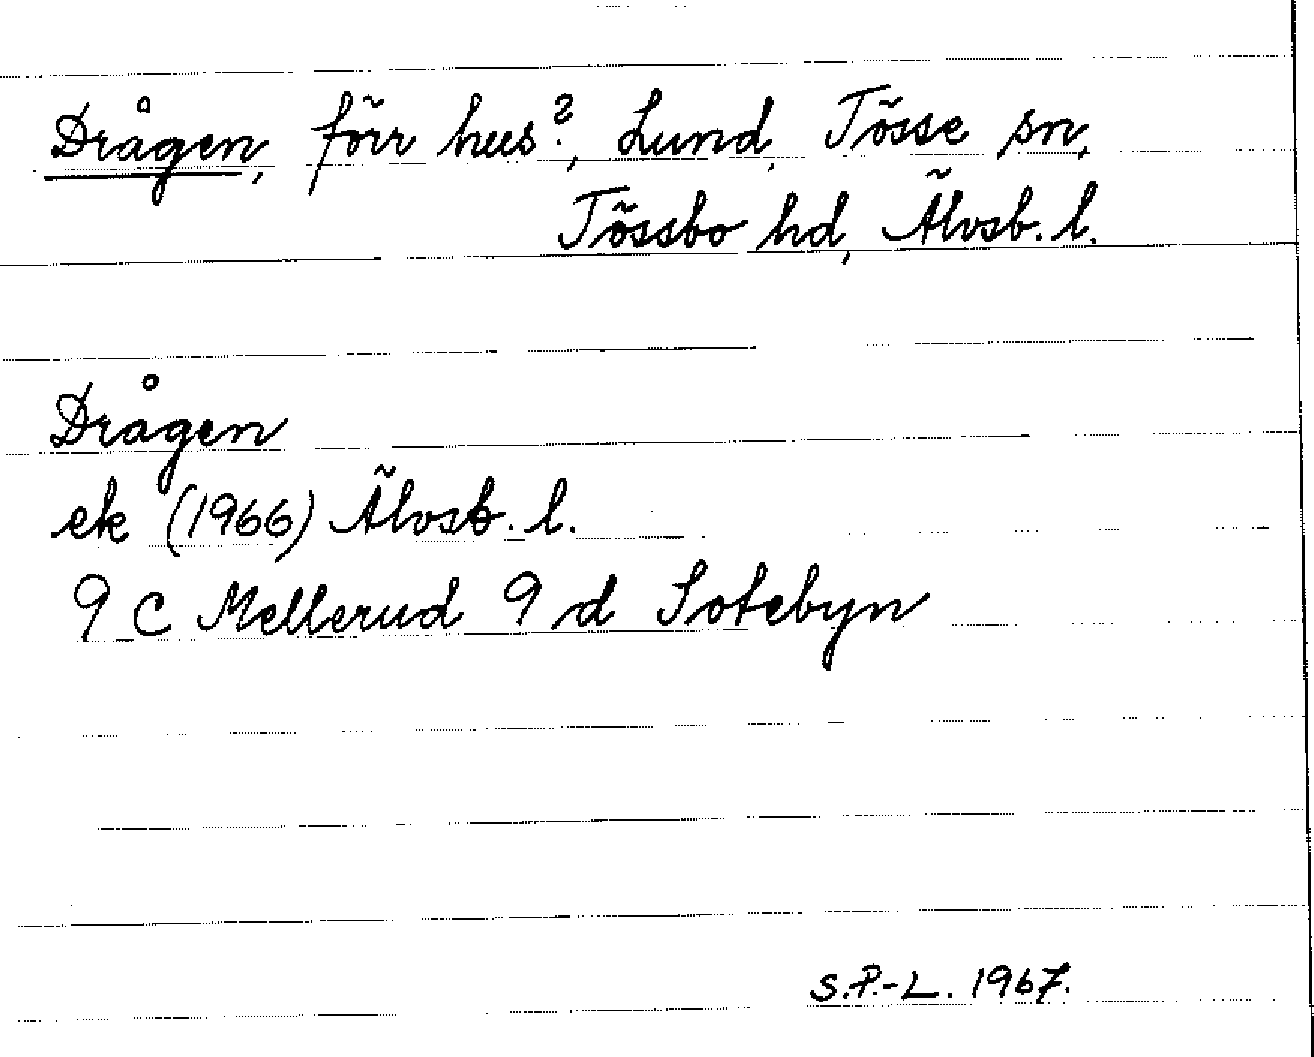 Drågen, förr hus?, Lund, Tösse sn,
Tössbo hd, Älvsb. l.
Drågen
ek (1966) Älvsb. l.
9 C Mellerud 9 d Sotebyn
S.P.-L. 1967.